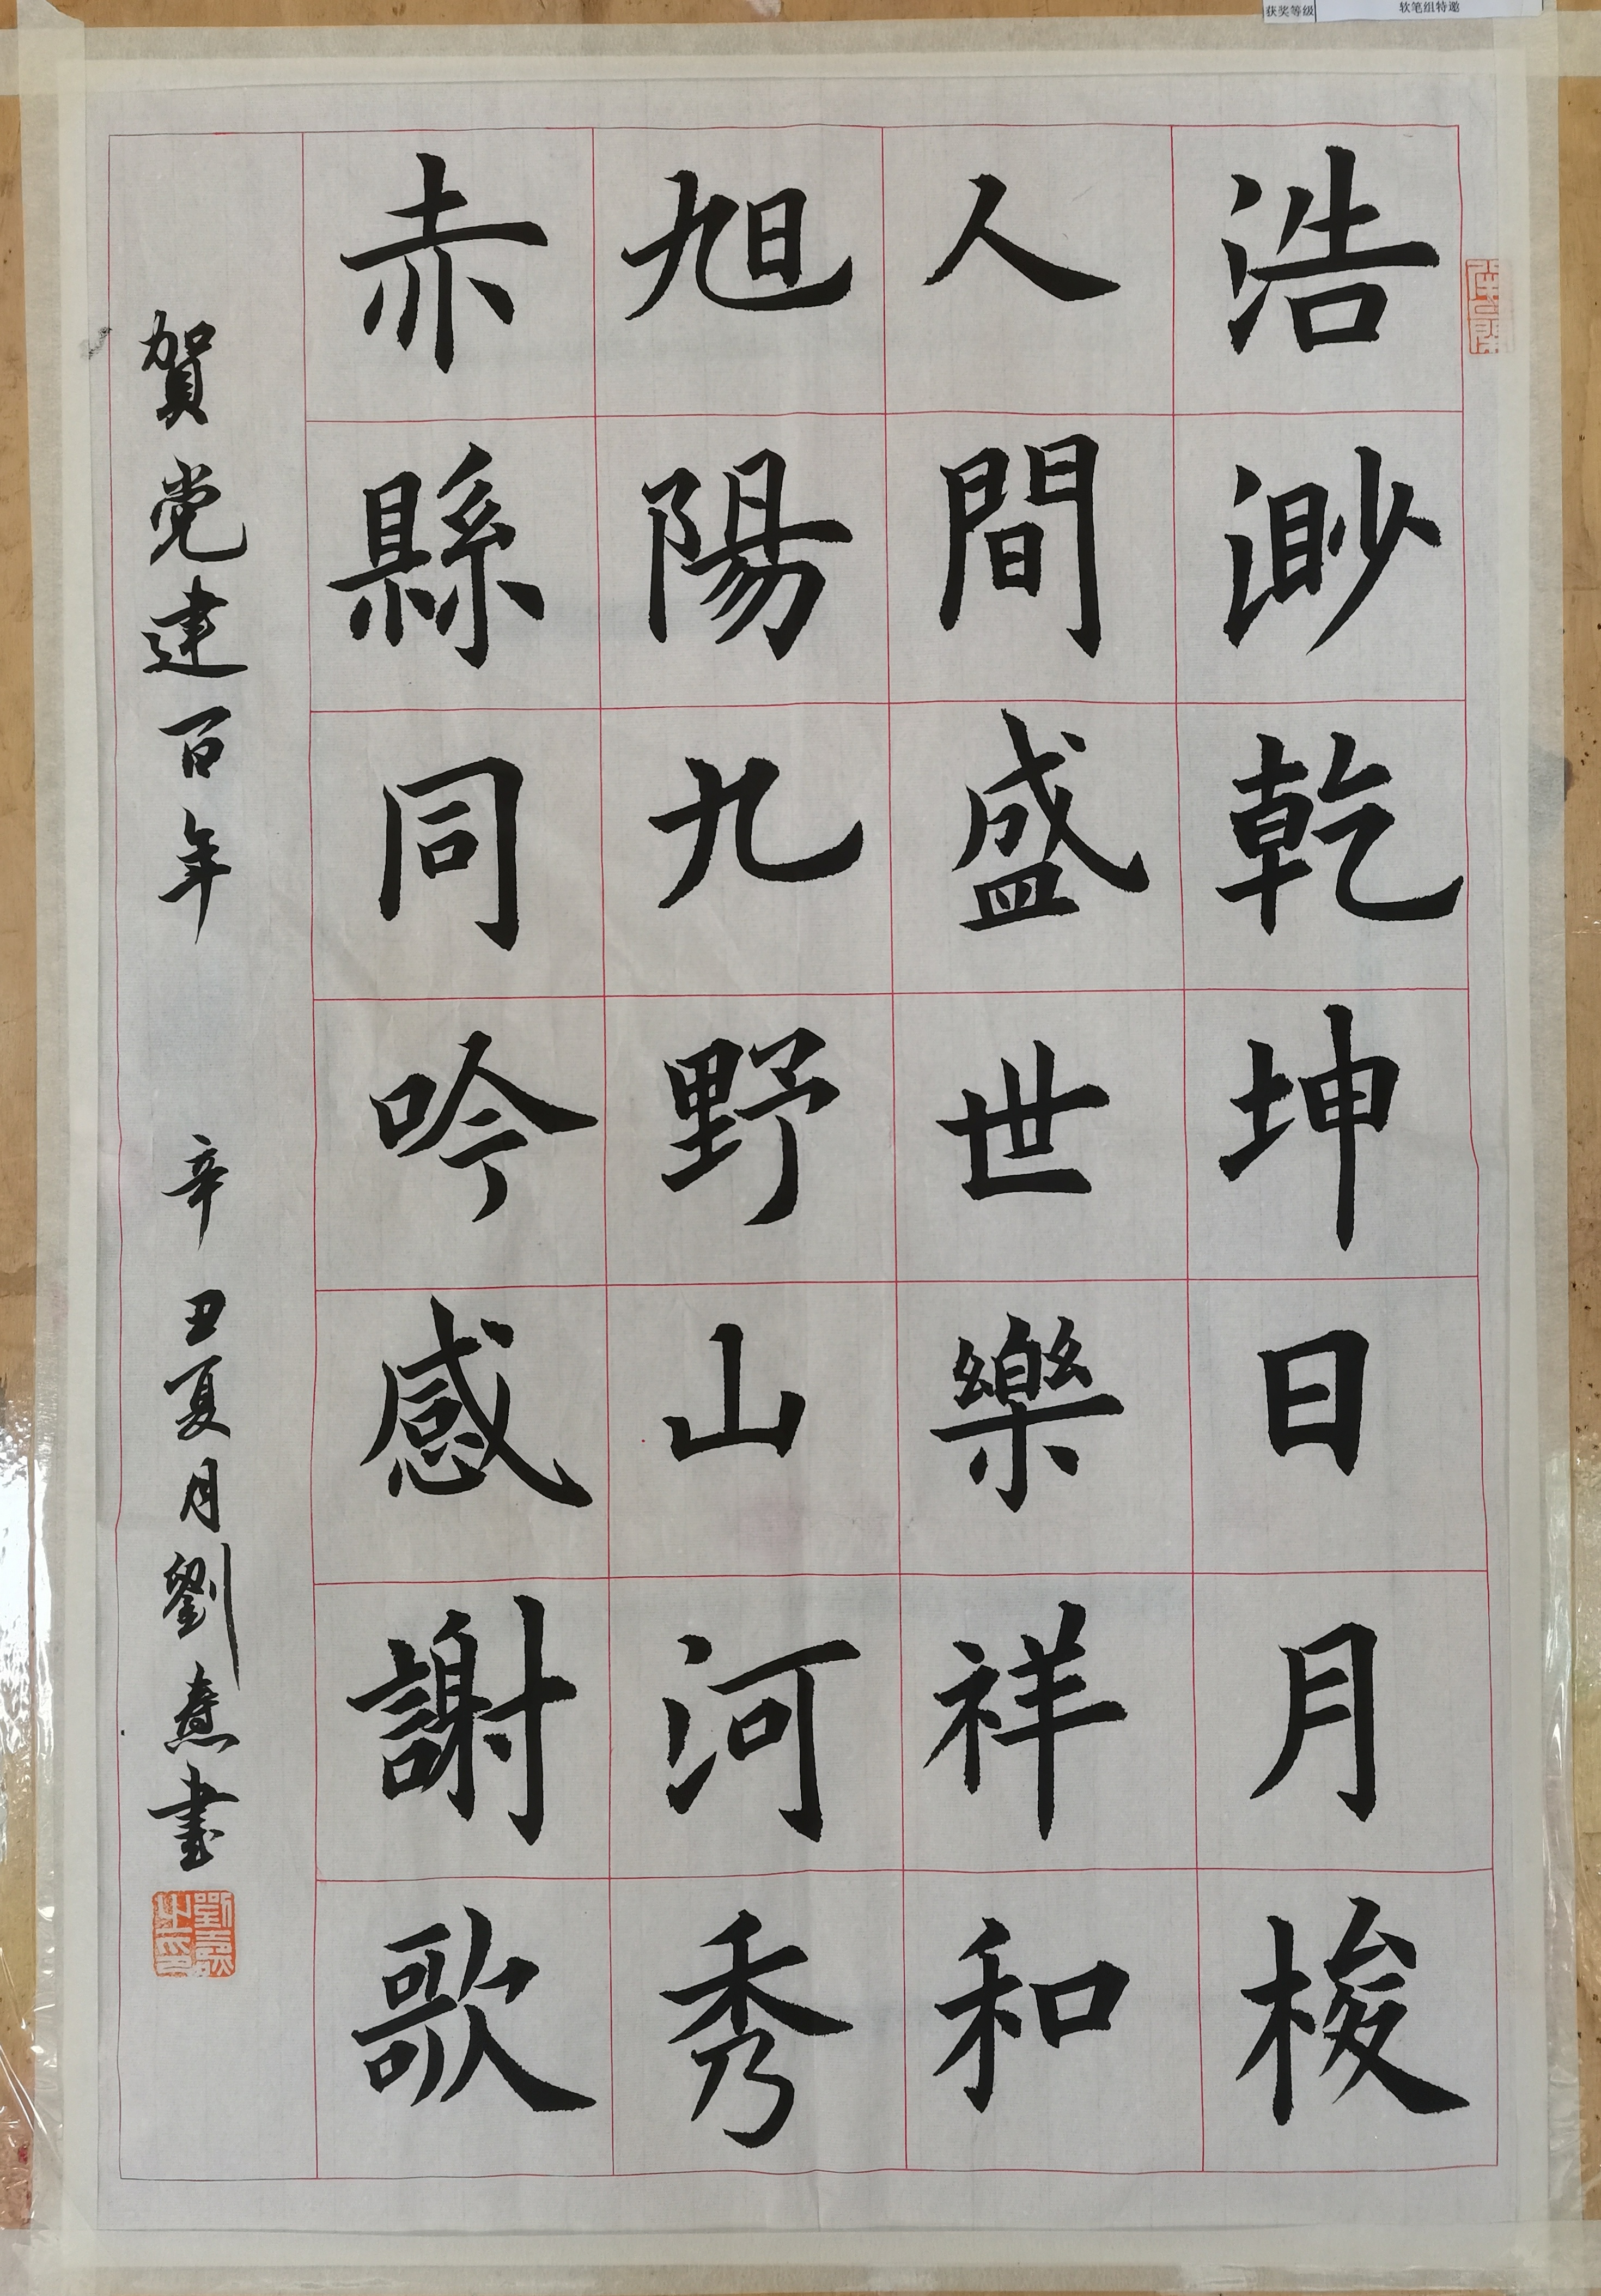 获奖等级 软笔组特邀
浩渺乾坤日月梭
人間盛世樂祥和
旭陽九野山河秀
赤縣同吟感謝歌
賀党建百年 辛丑夏月劉意書